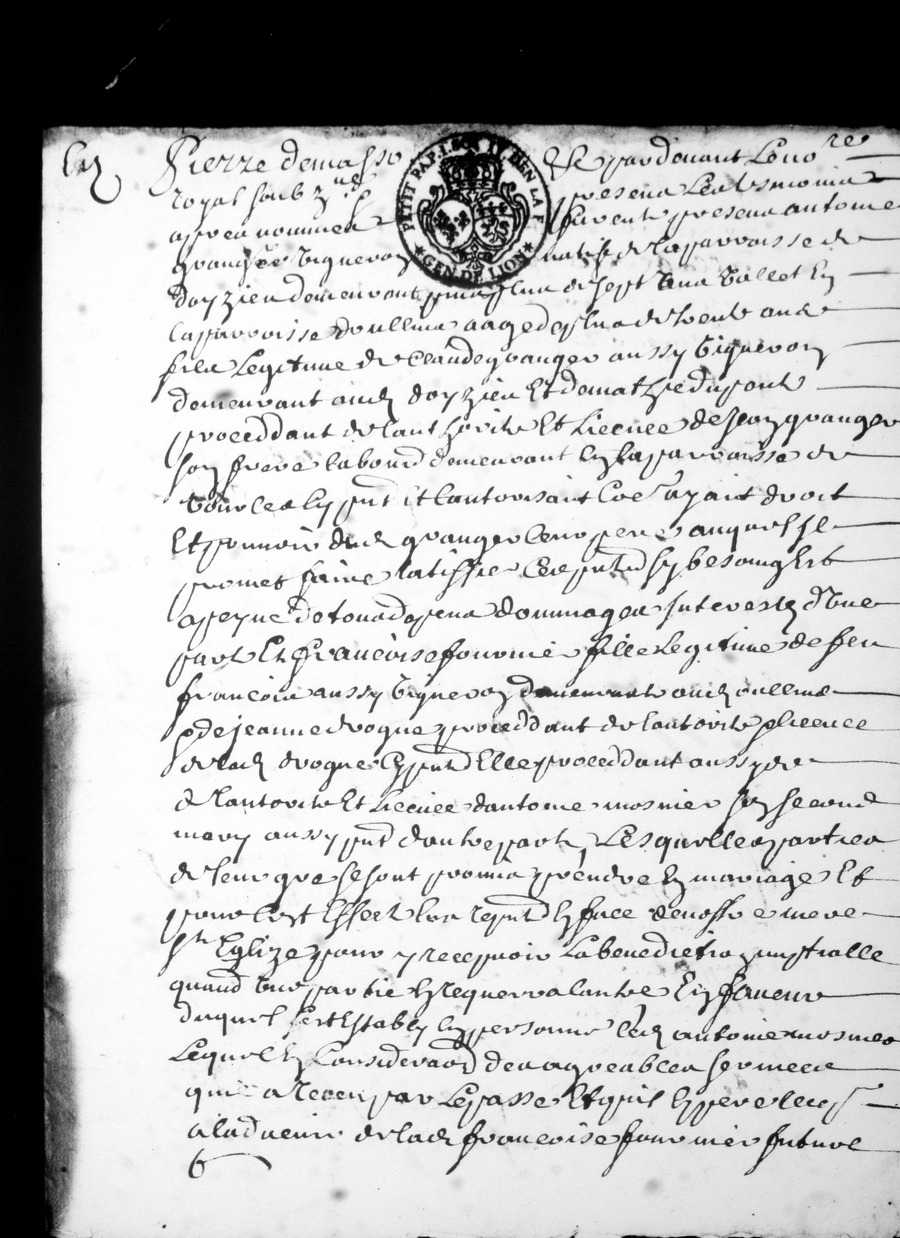 Pierre demasso
PETIT PAP. 1 SOL
GEN. DE LION
pardevant Le no^re
royal soubz^ne presens Les tesmoins
apres nommes furent presens antoine
granger Vigneron natif de la parroisse de
doyzieu demeurant
la parroisse doullins aage de plus de trente ans
fils Legitime de Claude granger aussy Vigneron
demeurant aud doyzieu Et de mathie dupont
proceddant de lauthorite Et licence de Jean granger
son frere labour demeurant En la parroisse de
Vourles Ey pnt Et lautorisant Co^e ayant droit
Et pouvoir dud granger leur pere auquel Il
promet faire ratiffier Ces pntes sy besoing Est
a peyne de tous despens dommages Interests d'Une
part Et françoise fournier fille Legitime de feu
françois aussy Vigneron demeurant aud oullins
& de jeanne drogue proceddant de lautorite & licence
de lad drogue Ey pnt Elle proceddant aussy de
de lautorite Et licence dantoine mosnier son second
mary aussy pnt dautre part, Lesquelles parties
de leur gre se sont promis prendre En mariage Et
pour cest Effect En face de nostre mere
S^te Eglize pour y recepvoir La benediction nuptialle
quand Une partie En requerra lautre En faveur
duquel sest Estably En personne led antoine mosnier
Lequel En Consideraon des agreables services
quil a receu par Le passe Et quil Espere recep^r
a ladvenir de lad françoise fournier future